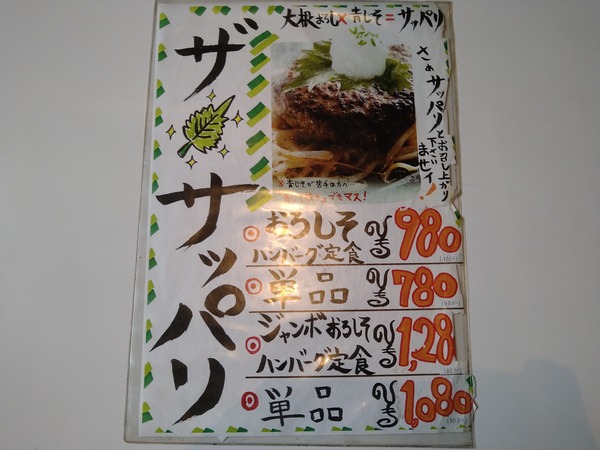 大根おろし×青じそ=サッパリ
ザ
サッパリ
さぁサッパリとお召し上がり
下さい
ませイ!
※青じそが苦手な方へ…
できマス!
おろしそ
ハンバーグ定食 ¥980
単品 ¥780
ジャンボおろしそ
ハンバーグ定食 ¥1,28
単品 ¥1,080